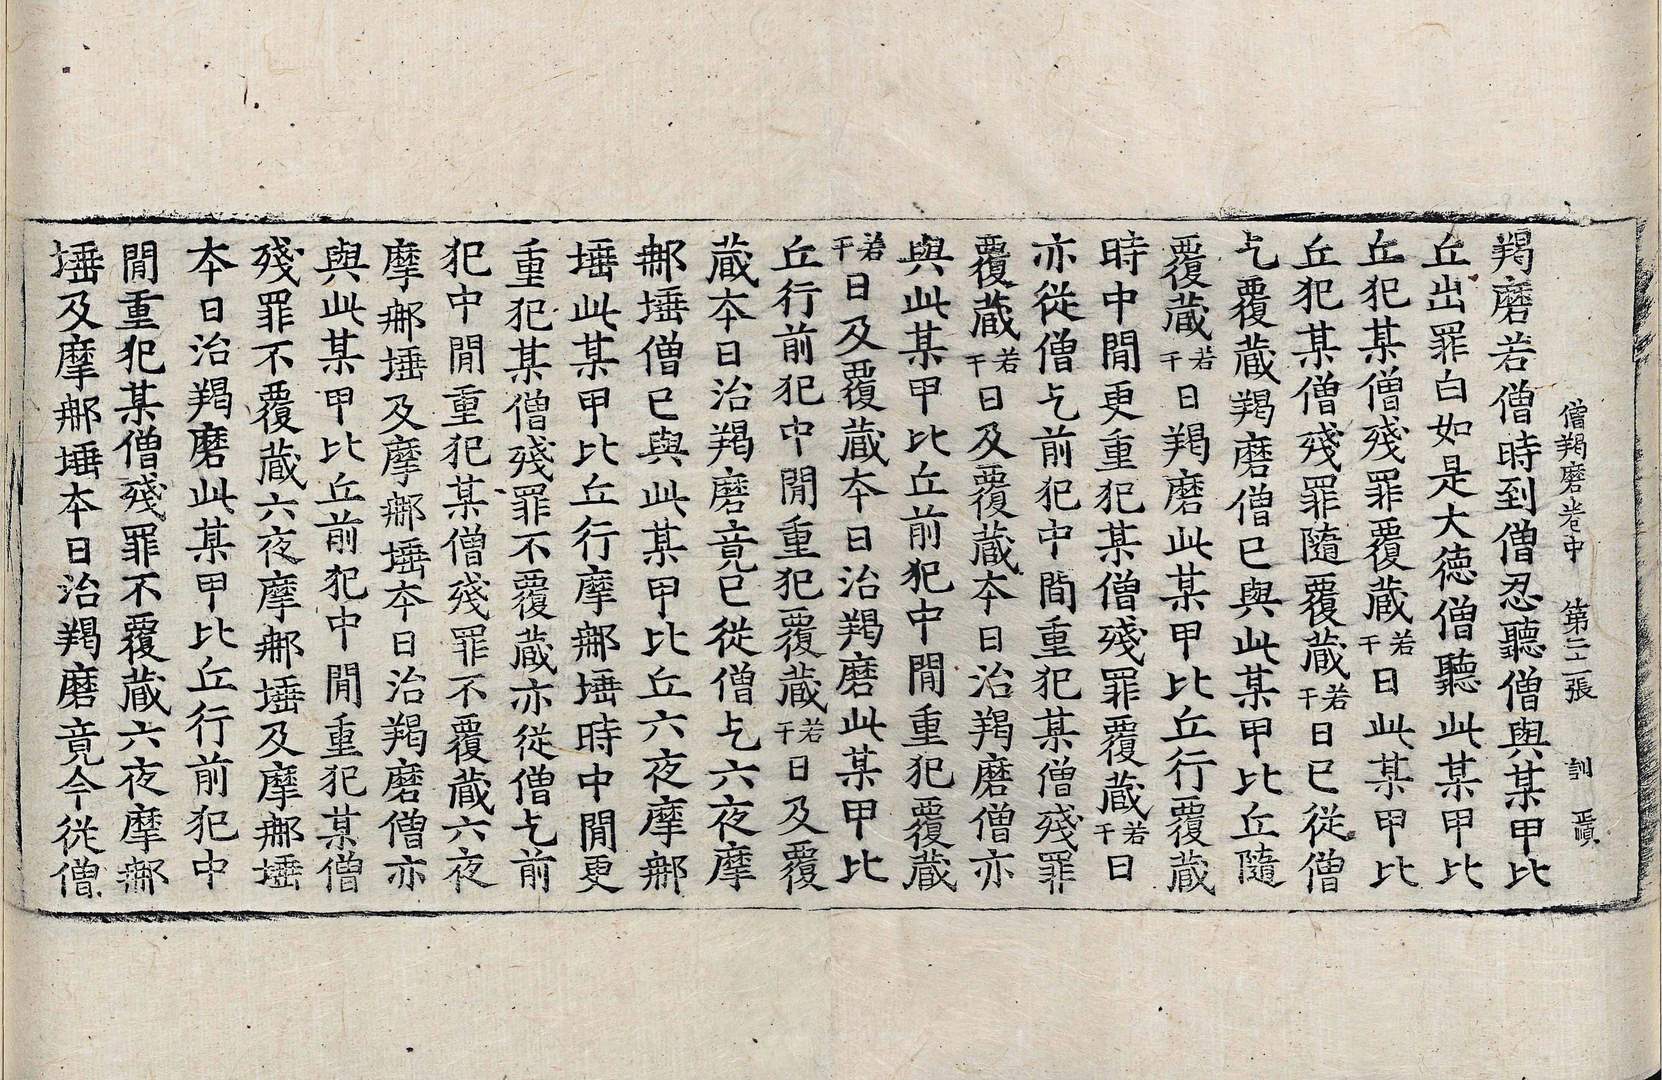 僧羯磨卷中 第三十二張 訓
羯磨若僧時到僧忍聽僧與某甲比
丘出罪白如是大德僧聽此某甲比
丘犯某僧殘罪覆藏若干日此某甲比
丘犯某僧殘罪隨覆藏若干日已從僧
乞覆藏羯磨僧已與此某甲比丘隨
覆藏若干日羯磨此某甲比丘行覆藏
時中閒更重犯某僧殘罪覆藏若干日
亦從僧乞前犯中間重犯某僧殘罪
覆藏若干日及覆藏本日治羯磨僧亦
與此某甲比丘前犯中閒重犯覆藏
若干日及覆藏本日治羯磨此某甲比
丘行前犯中閒重犯覆藏若干日及覆
藏本日治羯磨竟已從僧乞六夜摩
那埵僧已與此某甲比丘六夜摩那
埵此某甲比丘行摩那埵時中閒更
重犯某僧殘罪不覆藏亦從僧乞前
犯中閒重犯某僧殘罪不覆藏六夜
摩那埵及摩那埵本日治羯磨僧亦
與此某甲比丘前犯中閒重犯某僧
殘罪不覆藏六夜摩那埵及摩那埵
本日治羯磨此某甲比丘行前犯中
閒重犯某僧殘罪不覆藏六夜摩那
埵及摩那埵本日治羯磨竟今從僧